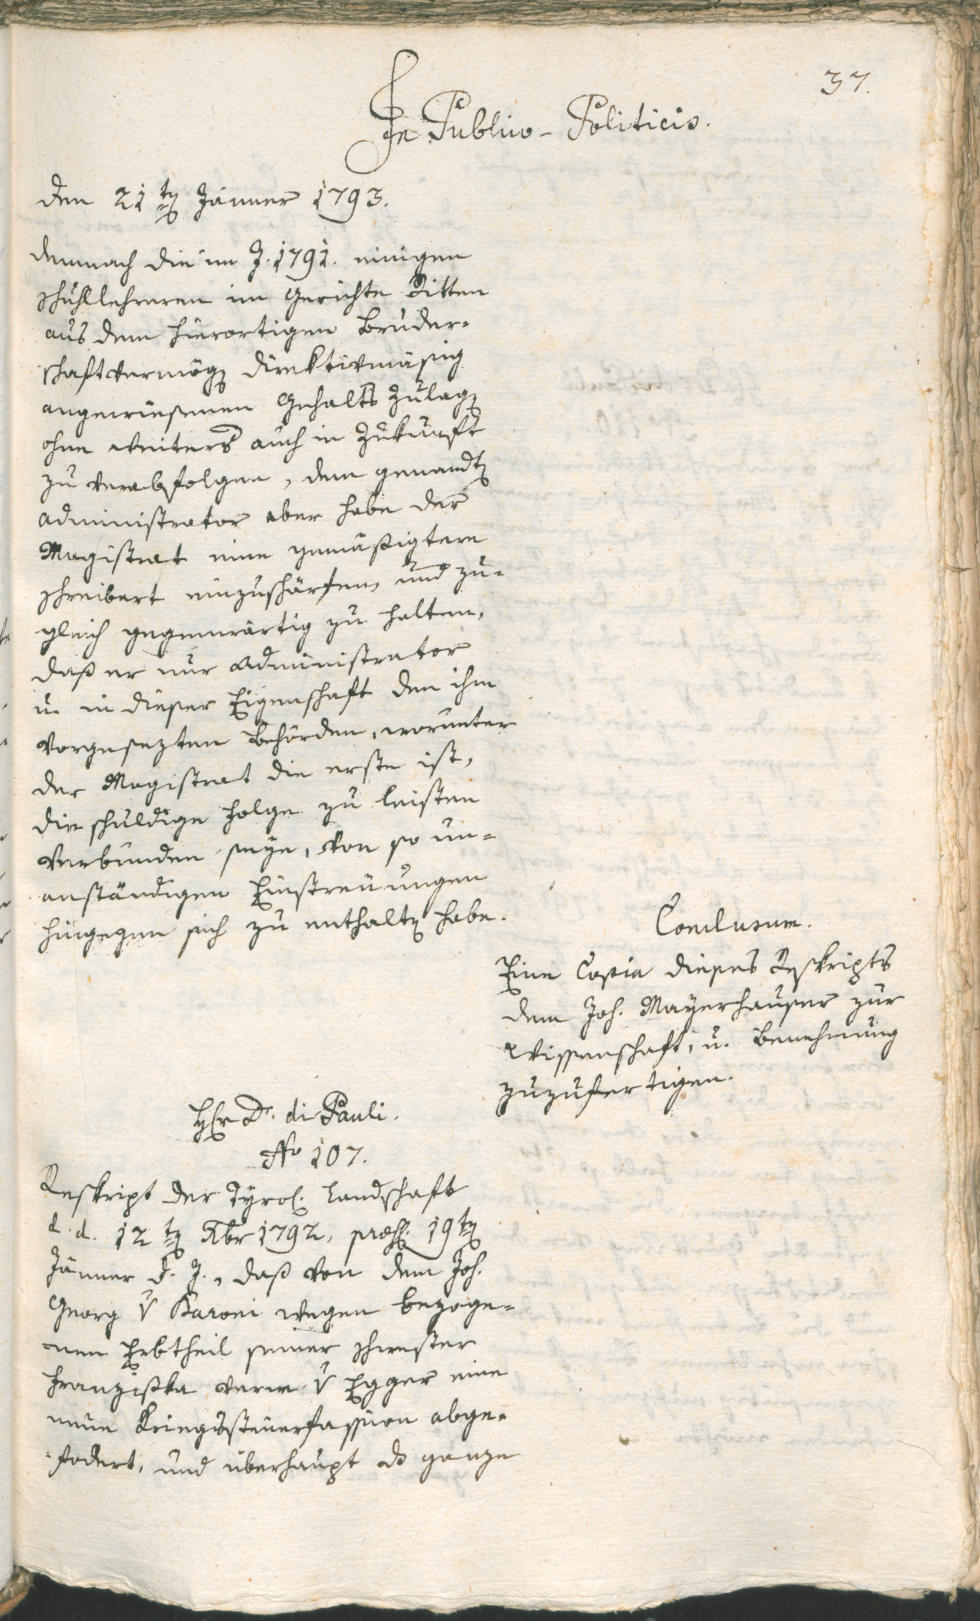 37.
In Publico-Politicis.
den 21ten Jänner 1793.
demnach die im J. 1791. einigen
Schullehreren im Gerichte Ritten
aus dem hierortigen Bruder-
schaftsvermögen direktivmäsig
angewiesenen Gehalts Zulagen
ohne weiters auch in Zukunft
zu verabfolgen, dem genandten
Administrator aber habe der
Magistrat eine gemäßigtere
Schreibart einzuschärfen, und zu-
gleich gegenwärtig zu halten,
daß er nur Administrator
u. in dieser Eigenschaft den ihm
vorgesezten Behörden, worunter
der Magistrat die erste ist,
die schuldige Folge zu leisten
verbunden seye, von so un-
anständigen Einstreuungen
hingegen sich zu enthalten habe.
Conclusum.
Eine Copia dieses Reskripts
dem Joh. Mayerhauser zur
Wissenschaft, u. Benehmung
zuzufertigen.
Hr Dr. di Pauli.
No 107.
Reskript der Tyrol. Landschaft
d. d. 12ten Xbr 1792, præs. 19ten
Jänner d. J., daß von dem Joh.
Georg v Baroni wegen bezoge-
nen Erbtheil seiner Schwester
Franziska verw. v Egger eine
neue Kriegssteuerfassion abge-
fodert, und überhaupt das ganze